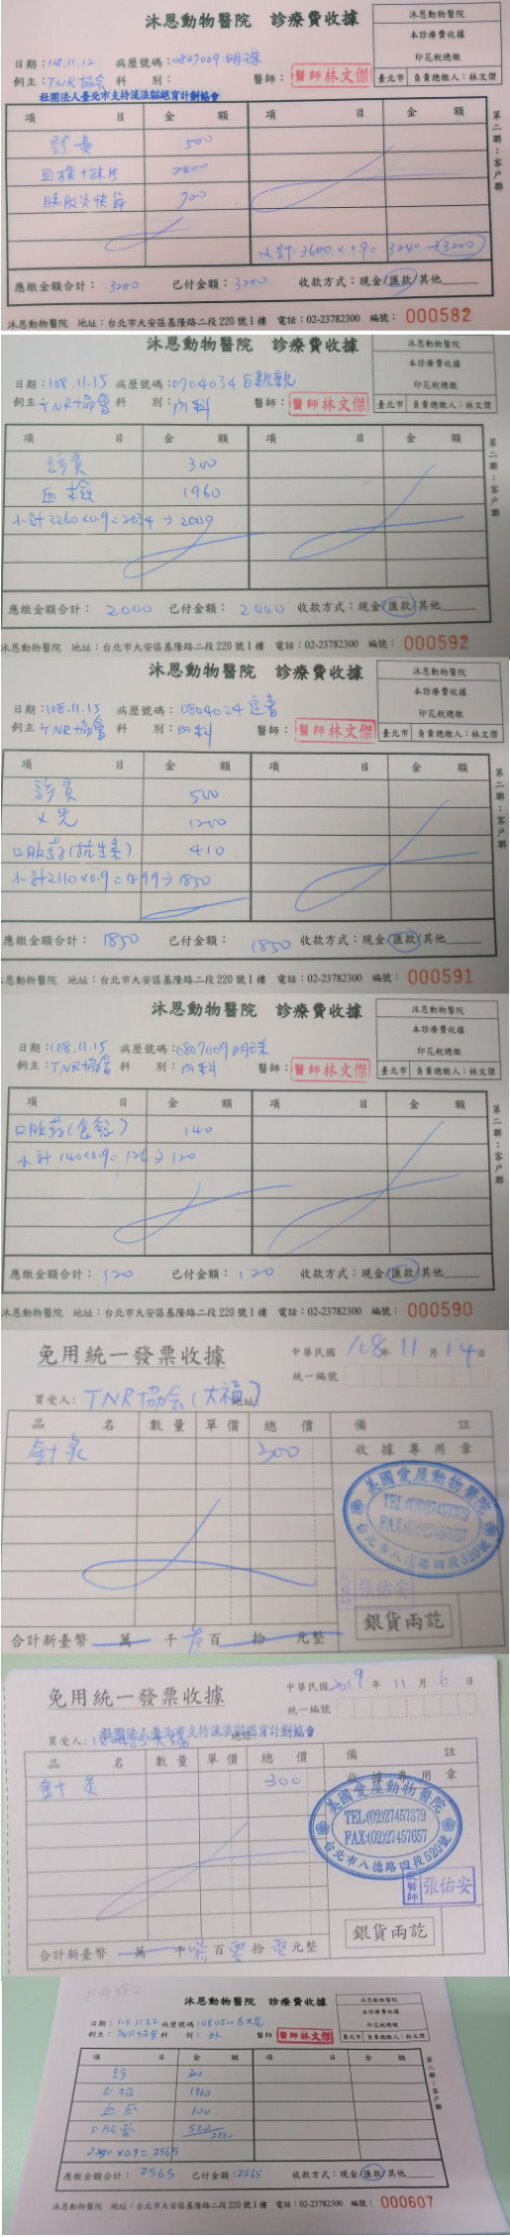 沐恩動物醫院 診療費收據
沐恩動物醫院
本診療費收據
印花稅總繳
臺北市 負責總繳人:林文傑
日期:108.11.12 病歷號碼:0807009 明珠
飼主:TNR協会 科 別: 醫師:醫師林文傑
社團法人臺北市支持流浪貓絕育計劃協會
項 目 金 額 項 目 金 額
診費 500
血檢+珠片 2400
胰臟炎快篩 700
小計:3600x0.9=3240→3200
應繳金額合計:3200 已付金額:3200 收款方式:現金/匯款/其他
第二聯:客戶聯
沐恩動物醫院 地址:台北市大安區基隆路二段220號1樓 電話:02-23782300 編號:000582
沐恩動物醫院 診療費收據
沐恩動物醫院
本診療費收據
印花稅總繳
臺北市 負責總繳人:林文傑
日期:108.11.15 病歷號碼:0704034
飼主:TNR協會 科 別:內科 醫師:醫師林文傑
項 目 金 額 項 目 金 額
診費 300
血檢 1960
小計2260x0.9=2034→2000
應繳金額合計:2000 已付金額:2000 收款方式:現金/匯款/其他
第二聯:客戶聯
沐恩動物醫院 地址:台北市大安區基隆路二段220號1樓 電話:02-23782300 編號:000592
沐恩動物醫院 診療費收據
沐恩動物醫院
本診療費收據
印花稅總繳
臺北市 負責總繳人:林文傑
日期:108.11.15 病歷號碼:0804024
飼主:TNR協會 科 別:內科 醫師:醫師林文傑
項 目 金 額 項 目 金 額
診費 500
X光 1200
口服葯(抗生素) 410
小計2110x0.9=1899→1850
應繳金額合計:1850 已付金額:1850 收款方式:現金/匯款/其他
第二聯:客戶聯
沐恩動物醫院 地址:台北市大安區基隆路二段220號1樓 電話:02-23782300 編號:000591
沐恩動物醫院 診療費收據
沐恩動物醫院
本診療費收據
印花稅總繳
臺北市 負責總繳人:林文傑
日期:108.11.15 病歷號碼:0807009 明珠
飼主:TNR協會 科 別:內科 醫師:醫師林文傑
項 目 金 額 項 目 金 額
口服葯 140
小計 140x0.9=126→120
應繳金額合計:120 已付金額:120 收款方式:現金/匯款/其他
第二聯:客戶聯
沐恩動物醫院 地址:台北市大安區基隆路二段220號1樓 電話:02-23782300 編號:000590
免用統一發票收據
中華民國 108年 11 月 14日
統一編號
買受人:TNR協会(大福)
品 名 數 量 單 價 總 價 備 註
針灸 300
收據專用章
美國愛屋動物醫院
TEL:(02)27457379
FAX:(02)27457657
台北市八德路四段520號
張佑安
銀貨兩訖
合計新臺幣 萬 千 叁百 拾 元整
免用統一發票收據
中華民國 2019 年 11 月 6 日
統一編號
買受人:
社團法人臺北市支持流浪貓絕育計劃協會
品 名 數 量 單 價 總 價 備 註
針灸 300
收據專用章
美國愛屋動物醫院
TEL:(02)27457379
FAX:(02)27457657
台北市八德路四段520號
獸醫師 張佑安
銀貨兩訖
合計新臺幣 萬 千 叁百 零拾 零元整
沐恩動物醫院 診療費收據
沐恩動物醫院
本診療費收據
印花稅總繳
臺北市 負責總繳人:林文傑
日期:108.11.22 病歷號碼:
飼主:TNR協會 科 別: 醫師:醫師林文傑
項 目 金 額 項 目 金 額
診 300
血檢 1960
血壓 100
口服藥 520
2850
2850x0.9=2565
應繳金額合計:2565 已付金額:2565 收款方式:現金/匯款/其他
第二聯:客戶聯
沐恩動物醫院 地址:台北市大安區基隆路二段220號1樓 電話:02-23782300 編號:000607